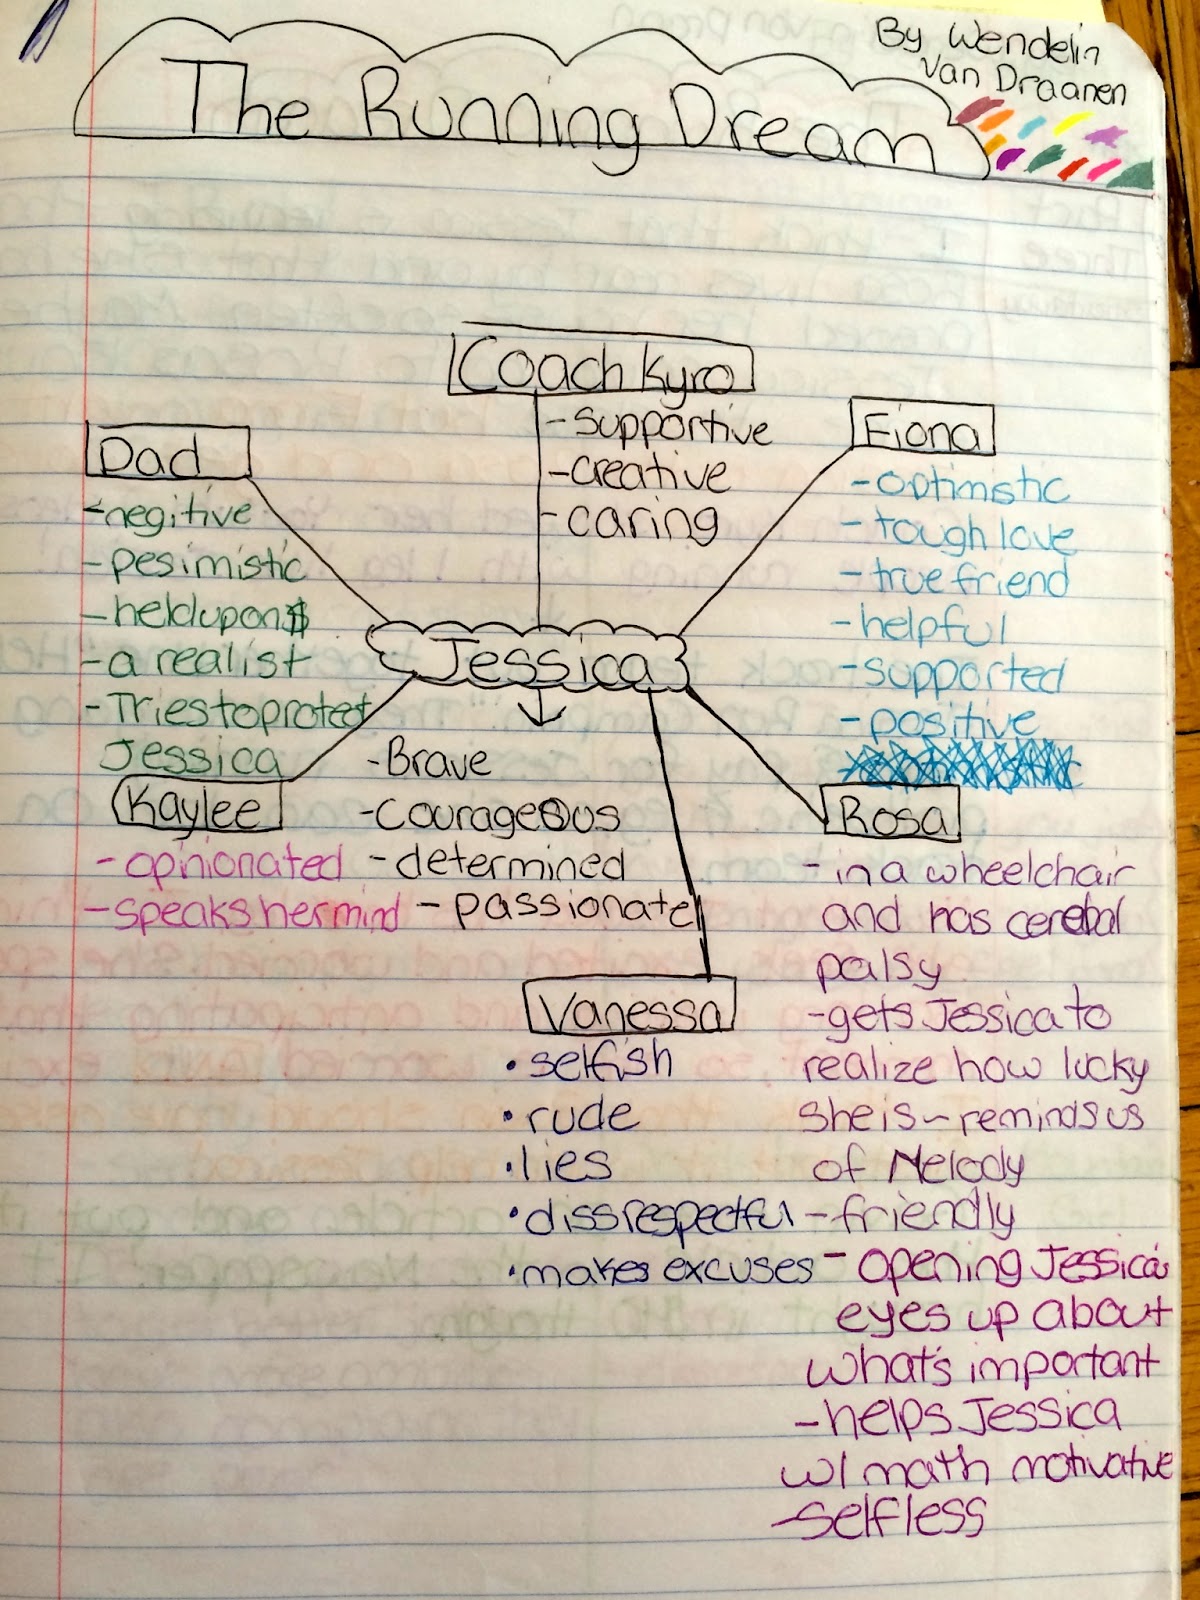 By Wendelin
Van Draanen
The Running Dream
Coach Kyro
-supportive
-creative
-caring
Dad
-negitive
-pesimistic
-heldupon$
-a realist
-Triestoprotect
Jessica
Fiona
-optimstic
-tough love
-true friend
-helpful
-supported
-positive
Jessica
-Brave
-Courageous
-determined
-passionate
Kaylee
-opinionated
-speaks her mind
Vanessa
•selfish
•rude
•lies
•dissrespectful
•makes excuses
Rosa
-in a wheelchair
and has cerebal
palsy
-gets Jessica to
realize how lucky
she is~reminds us
of Melody
-friendly
-opening Jessica's
eyes up about
what's important
-helps Jessica
w/ math motivative
-selfless